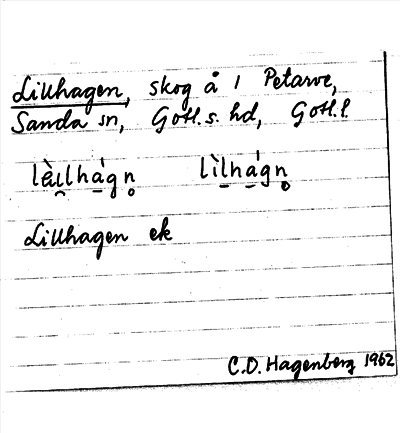 Lillhagen, skog å 1 Petarve,
Sanda sn, Gotl. s. hd, Gotl. l.
lä̀i̯lhá̠gn̥ lì̠lhá̠gn̥
Lillhagen ek
C.D. Hagenberg 1962